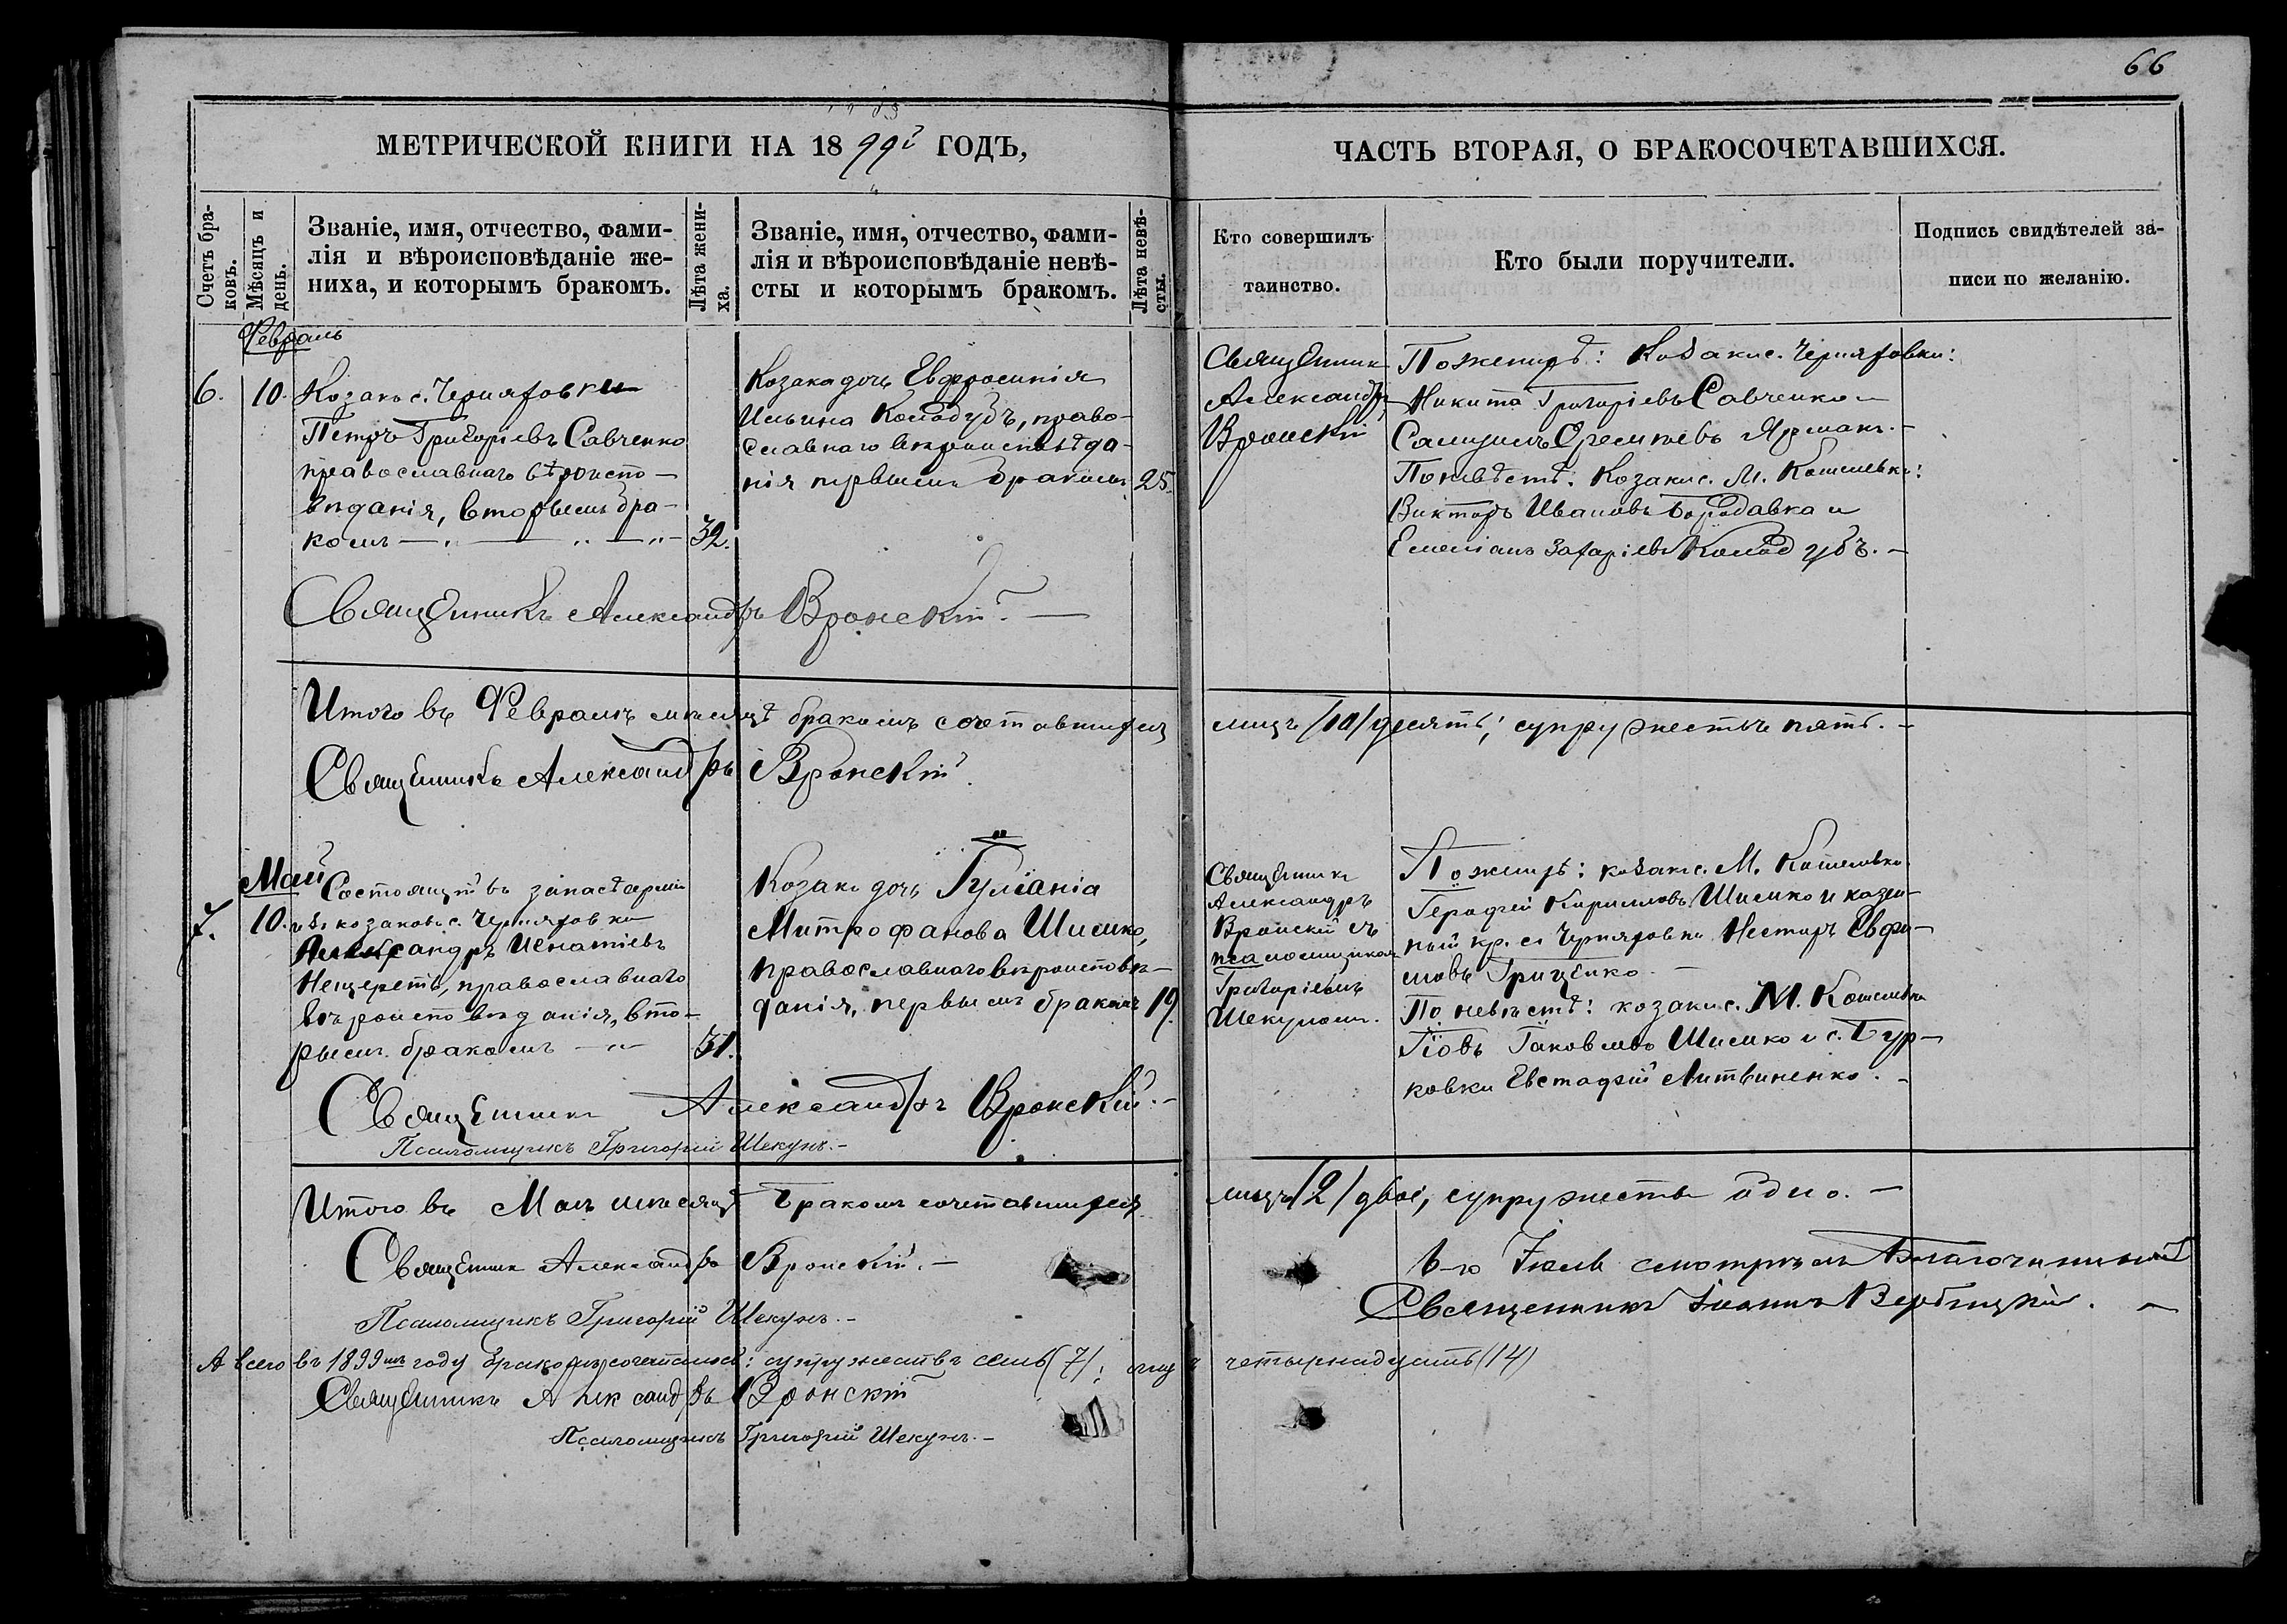 66
МЕТРИЧЕСКОЙ КНИГИ НА 1899й ГОДЪ,
ЧАСТЬ ВТОРАЯ, О БРАКОСОЧЕТАВШИХСЯ.
Счетъ бра-
ковъ.
Мѣсяцъ и
день.
Званіе, имя, отчество, фами-
лія и вѣроисповѣданіе же-
ниха, и которымъ бракомъ.
Лѣта жени-
ха.
Званіе, имя, отчество, фами-
лія и вѣроисповѣданіе невѣ-
сты и которымъ бракомъ.
Лѣта невѣ-
сты.
Кто совершилъ
таинство.
Кто были поручители.
Подпись свидѣтелей за-
писи по желанію.
Февраль
6. 10.
Козакъ с. Черняховки
Петръ Григоріевъ Савченко
православнаго вѣроиспо-
вѣданія, вторымъ бра-
комъ 32.
Козака дочь Евфросинія
Ильина Колодубъ, право-
славнаго вѣроисповѣда-
нія первымъ бракомъ 25.
Священник
Александръ
Вронскій
По женихѣ: Козаки с. Черняховки:
Никита Григоріевъ Савченко и
Самуилъ Ярмакъ.
По невѣстѣ: Козаки с. М. Кошелевки:
Викторъ Ивановъ Бородавка и
Емеліанъ Захаріевъ Колодубъ.
Священникъ Александръ Вронскій.
Итого въ Февралѣ мѣсяцѣ бракомъ сочетавшихся лицъ /10/ десять; супружествъ пять.
Священникъ Александръ Вронскій.
Май
7. 10.
Состоящій въ запасѣ арміи
изъ козаковъ с. Черняховки
Александръ Игнатіевъ
Нещеретъ, православнаго
вѣроисповѣданія, вто-
рымъ бракомъ 31.
Козака дочь Іуліанія
Митрофанова Шишко,
православнаго вѣроисповѣ-
данія, первымъ бракомъ 19.
Священникъ
Александръ
Вронскій съ
псаломщикомъ
Григоріемъ
Шекуномъ.
По женихѣ: козаки с. М. Кошелевки
Кириловъ Шишко и казен-
ный кр. с. Черняховки Несторъ Евфи-
мовъ Гриценко.
По невѣстѣ: козаки с. М. Кошелевки
Іовъ Іаковлевъ Шишко и с. Бур-
ковки Евстафій Литвиненко.
Священникъ Александръ Вронскій.
Псаломщикъ Григорій Шекунъ.
Итого въ Маѣ мѣсяцѣ бракомъ сочетавшихся лицъ /2/ двое, супружество одно.
Священник Александръ Вронскій.
Псаломщикъ Григорій Шекунъ.
Іюля смотрѣлъ Благочинный
Священникъ Іоаннъ Вербицкій.
А всего въ 1899мъ году бракомъ сочеталось: супружествъ семь (7); лицъ четырнадцать (14)
Священникъ Александръ Вронскій
Псаломщикъ Григорій Шекунъ.